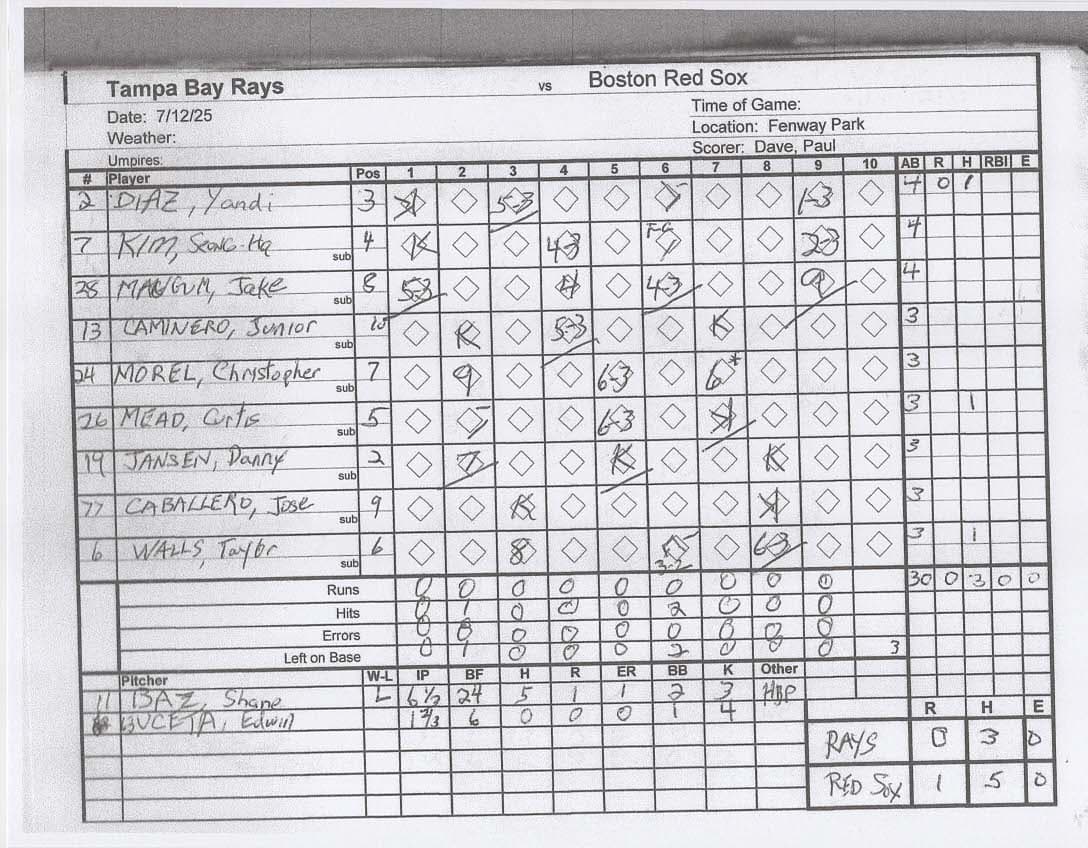 Tampa Bay Rays vs Boston Red Sox
Date: 7/12/25 Time of Game:
Weather: Location: Fenway Park
Umpires: Scorer: Dave, Paul
# Player Pos 1 2 3 4 5 6 7 8 9 10 AB R H RBI E
2 DIAZ, Yandi 3 5-3 1-3 4 0 1
7 KIM, Seong-Ha sub 4 K 4-3 FC 2-3 4
28 MANGUM, Jake sub 8 5-3 4-3 9 4
13 CAMINERO, Junior sub 10 K 5-3 K 3
24 MOREL, Christopher sub 7 9 6-3 6* 3
26 MEAD, Curtis sub 5 6-3 3 1
19 JANSEN, Danny sub 2 7 K K 3
77 CABALLERO, Jose sub 9 K 3
6 WALLS, Taylor sub 6 8 6-3 3 1
Runs 0 0 0 0 0 0 0 0 0 30 0 3 0 0
Hits 0 1 0 0 0 2 0 0 0
Errors 0 0 0 0 0 0 0 0 0
Left on Base 0 1 0 0 0 2 0 0 0 3
Pitcher W-L IP BF H R ER BB K Other
11 BAZ, Shane L 6 1/3 24 5 1 1 2 3 HBP
UCETA, Edwin 1 2/3 6 0 0 0 1 4
R H E
RAYS 0 3 0
RED SOX 1 5 0